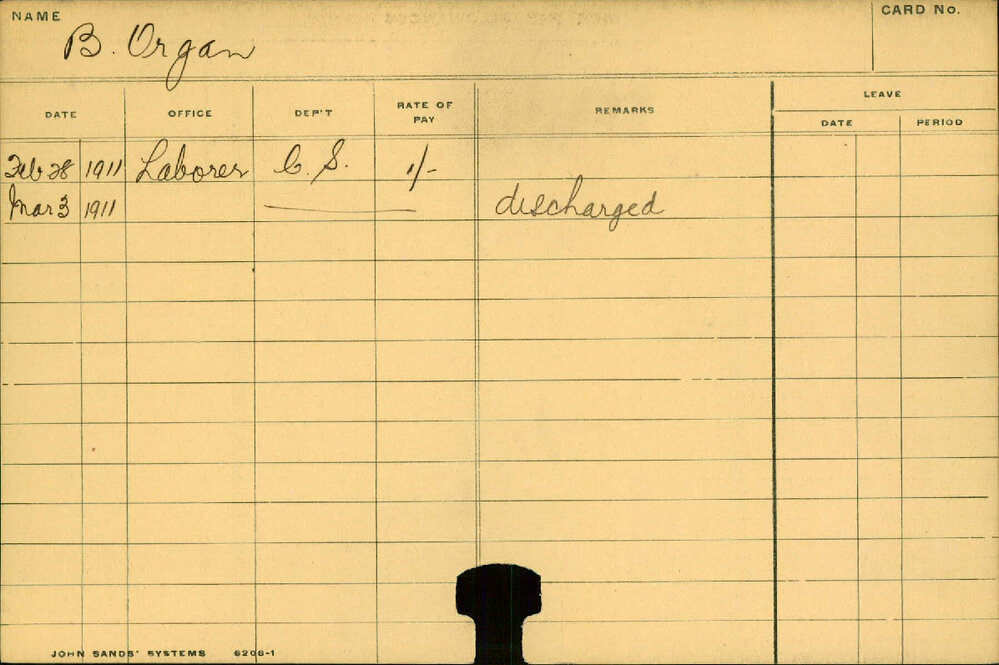 NAME
CARD No.
B. Organ
DATE OFFICE DEP'T RATE OF PAY REMARKS LEAVE
DATE PERIOD
Feb 28 1911 Laborer C. S. 1/-
Mar 3 1911 discharged
JOHN SANDS' SYSTEMS 6206-1